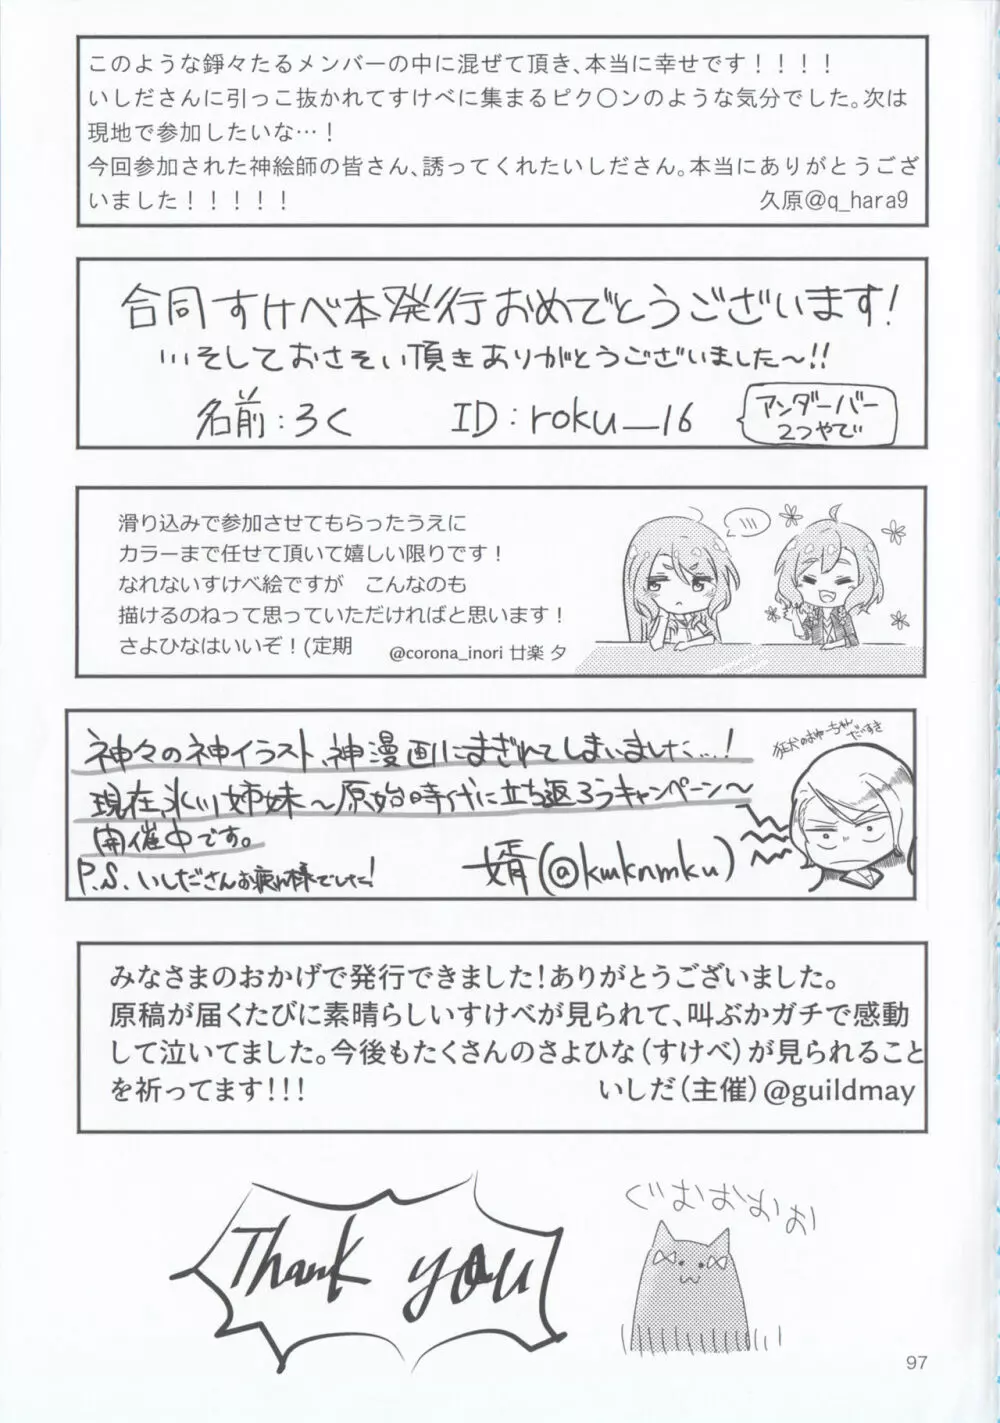 このような錚々たるメンバーの中に混ぜて頂き、本当に幸せです！！！！
いしださんに引っこ抜かれてすけべに集まるピク〇ンのような気分でした。次は
現地で参加したいな…！
今回参加された神絵師の皆さん、誘ってくれたいしださん。本当にありがとうござ
いました！！！！！
久原@q_hara9
合同すけべ本発行おめでとうございます!
…そしておさそい頂きありがとうございました〜!!
名前:ろく
ID:roku__16
アンダーバー
2つやで
滑り込みで参加させてもらったうえに
カラーまで任せて頂いて嬉しい限りです！
なれないすけべ絵ですが　こんなのも
描けるのねって思っていただければと思います！
さよひなはいいぞ！(定期
@corona_inori 廿楽 夕
神々の神イラスト、神漫画にまぎれてしまいました…!
現在氷川姉妹〜原始時代に立ち返ろうキャンペーン〜
開催中です。
P.S.いしださんお疲れ様でした!
婿(@kmknmku)
狂犬のおゆーちゃん
だいすき
みなさまのおかげで発行できました！ありがとうございました。
原稿が届くたびに素晴らしいすけべが見られて、叫ぶかガチで感動
して泣いてました。今後もたくさんのさよひな（すけべ）が見られること
を祈ってます!!!
いしだ（主催）@guildmay
Thank you
ぐおおおお
97